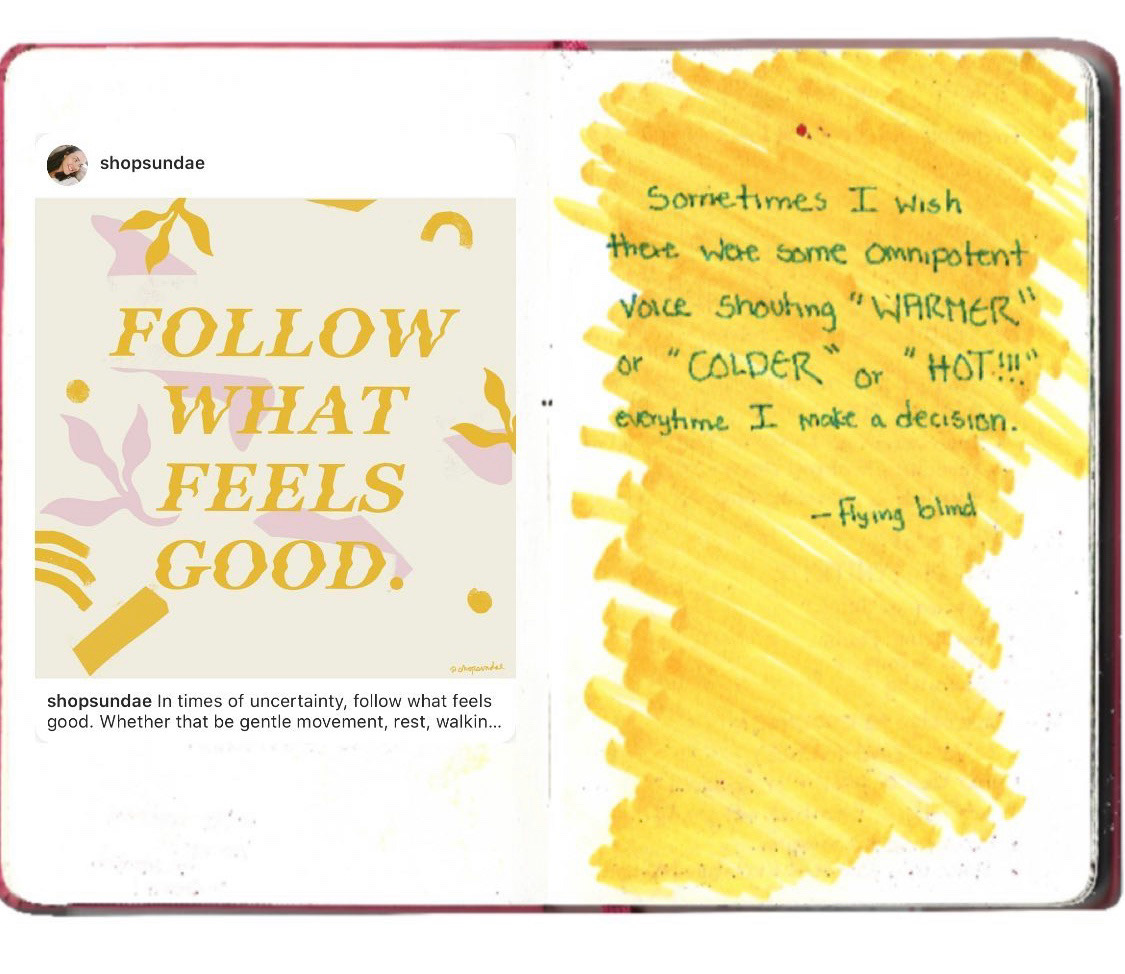 shopsundae
FOLLOW
WHAT
FEELS
GOOD.
@shopsundae
shopsundae In times of uncertainty, follow what feels
good. Whether that be gentle movement, rest, walkin...
Sometimes I wish
there were some omnipotent
voice shouting "WARMER"
or "COLDER" or "HOT!!!"
everytime I make a decision.
- Flying blind